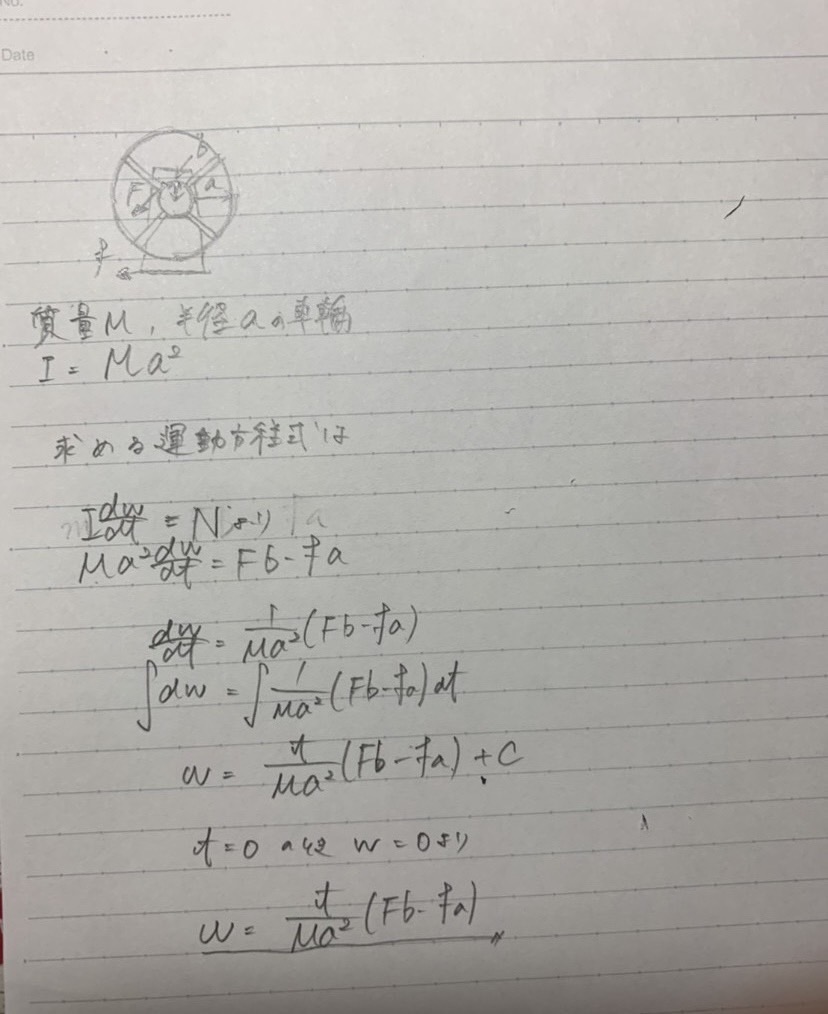 No.
Date
b
F a
f
質量M, 半径aの車輪
I = Ma²
求める運動方程式は
I dw/dt = Nより
Ma² dw/dt = Fb - fa
dw/dt = 1/Ma² (Fb - fa)
∫dw = ∫ 1/Ma² (Fb - fa) dt
w = t/Ma² (Fb - fa) + C
t = 0 のとき w = 0より
w = t/Ma² (Fb - fa)